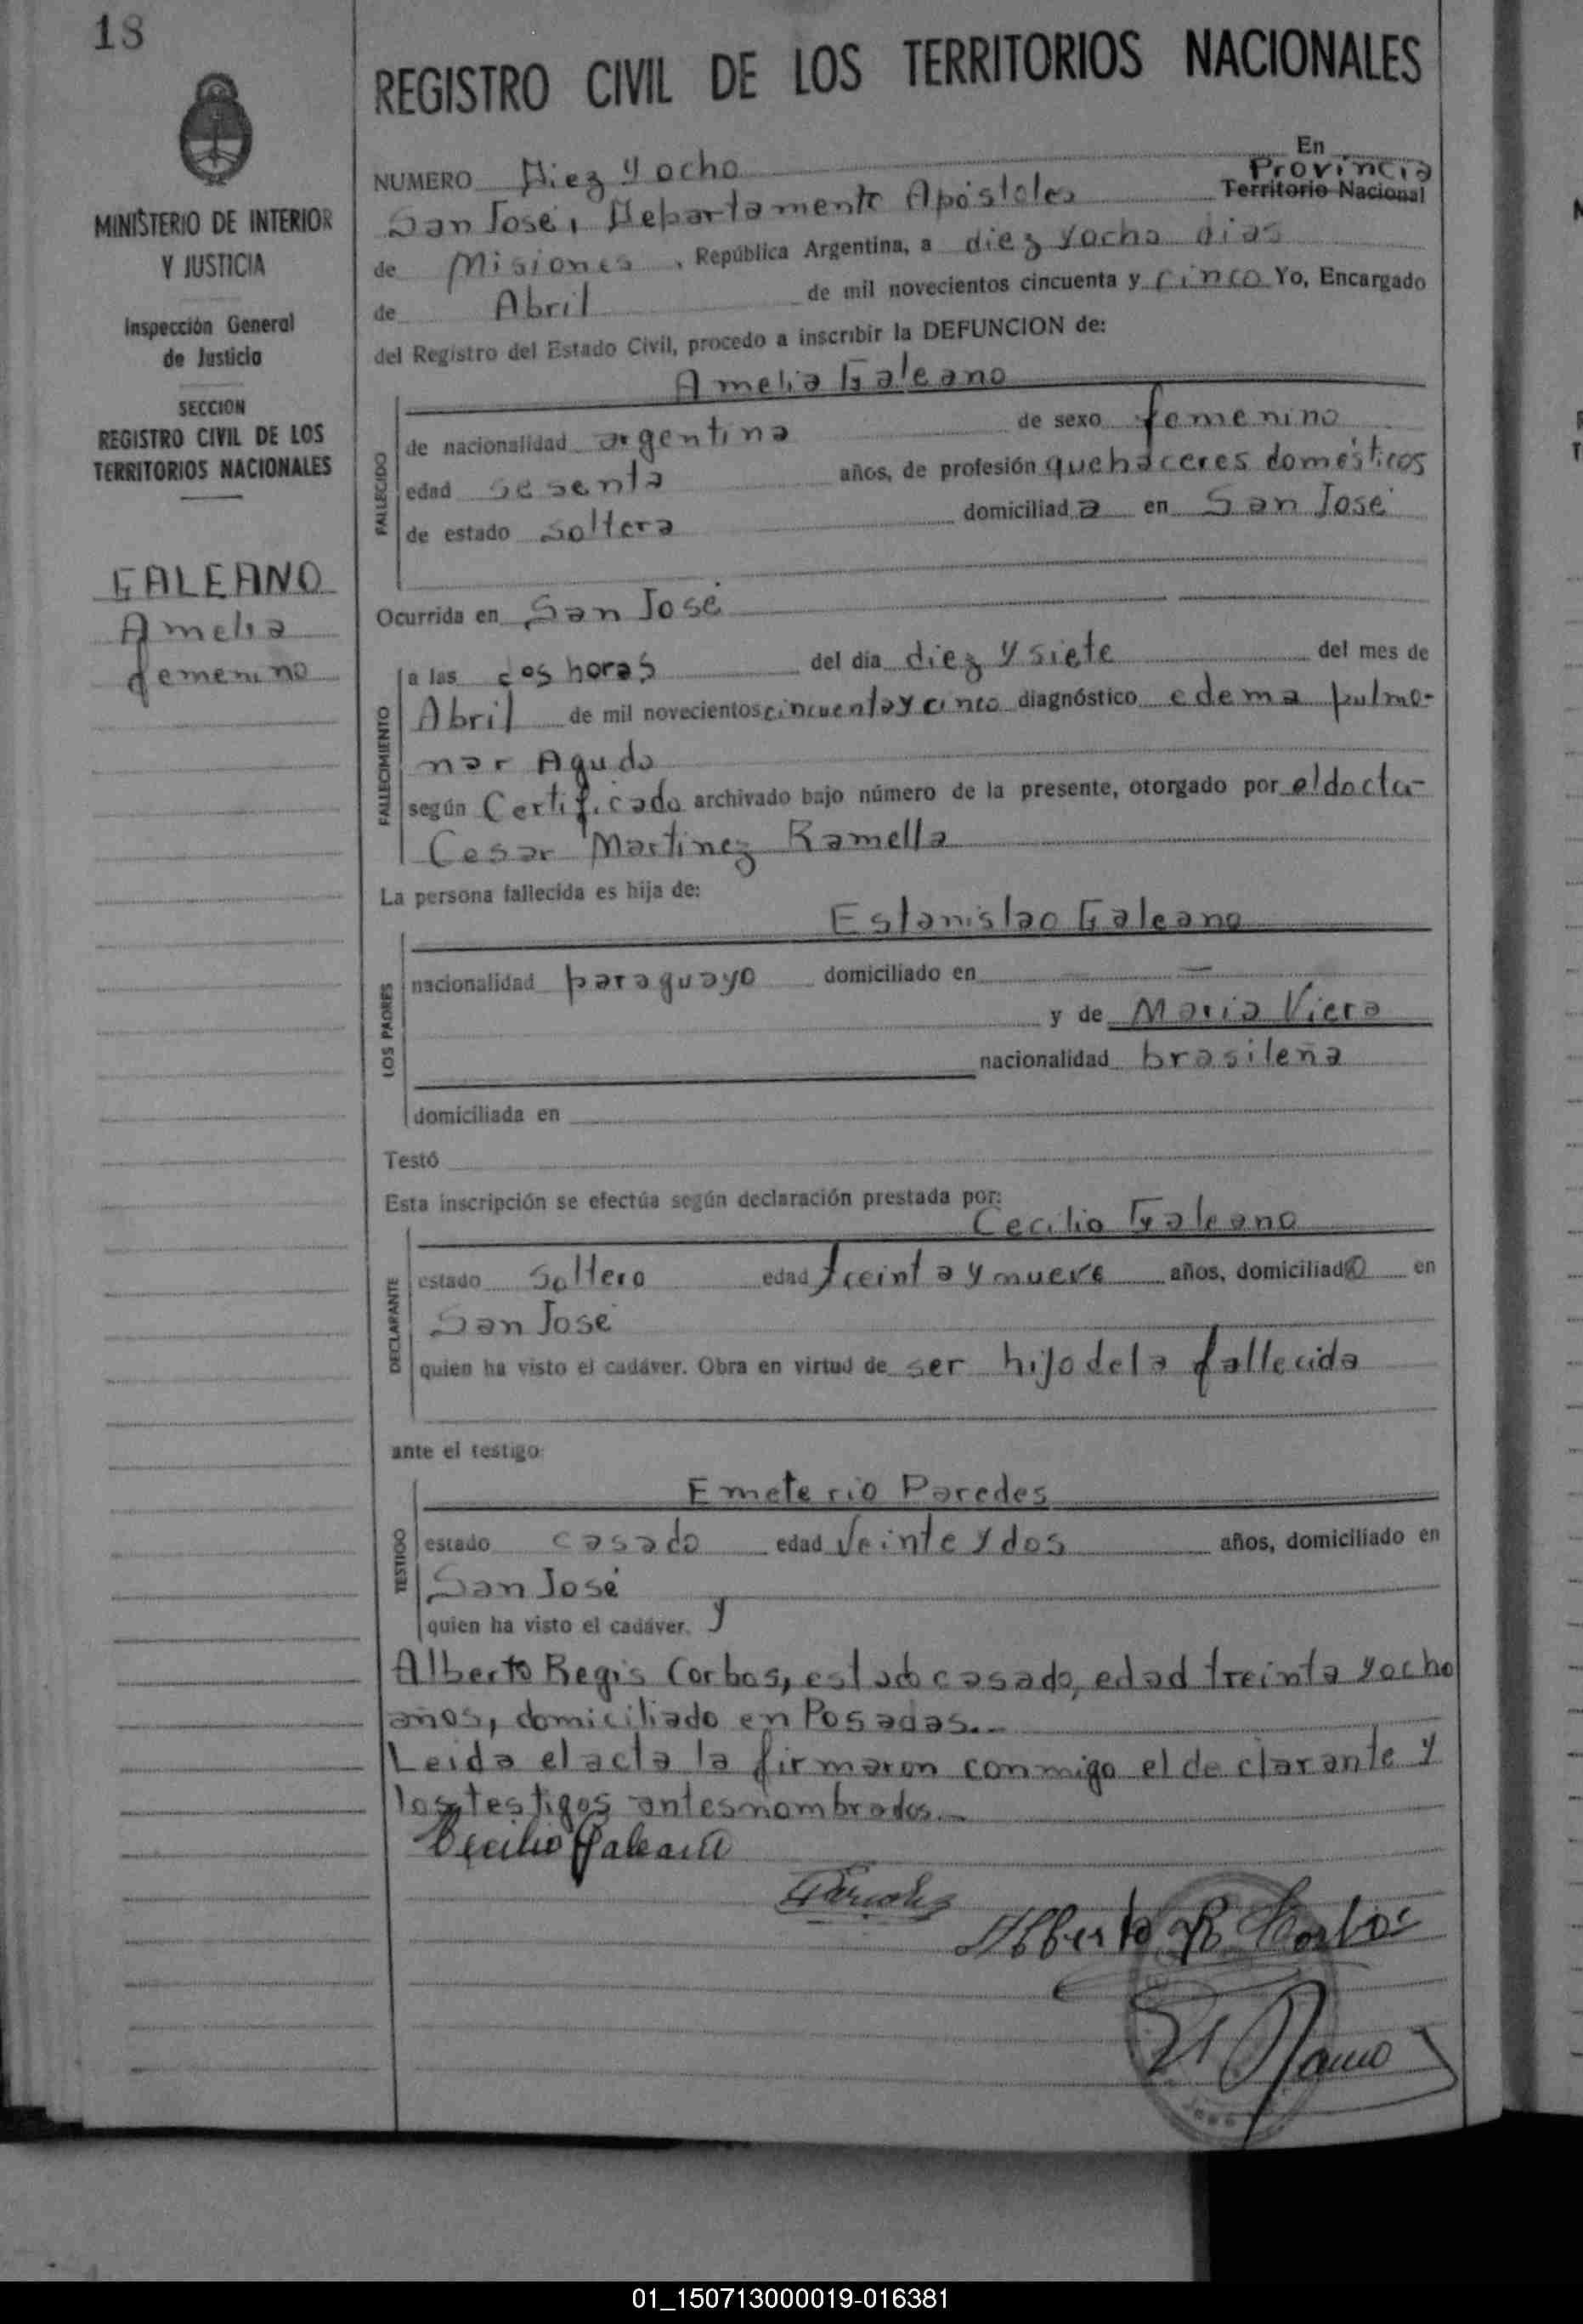 18
MINISTERIO DE INTERIOR
Y JUSTICIA
Inspección General
de Justicia
SECCION
REGISTRO CIVIL DE LOS
TERRITORIOS NACIONALES
GALEANO
Amelia
femenino
REGISTRO CIVIL DE LOS TERRITORIOS NACIONALES
En
NUMERO Diez y ocho Provincia
Territorio Nacional
San José, Departamento Apóstoles
de Misiones, República Argentina, a diez y ocho dias
de Abril de mil novecientos cincuenta y cinco Yo, Encargado
del Registro del Estado Civil, procedo a inscribir la DEFUNCION de:
Amelia Galeano
FALLECIDO
de nacionalidad argentina de sexo femenino
edad sesenta años, de profesión quehaceres domésticos
de estado soltera domiciliada en San José
Ocurrida en San José
FALLECIMIENTO
a las dos horas del día diez y siete del mes de
Abril de mil novecientos cincuenta y cinco diagnóstico edema pulmo-
nar Agudo
según Certificado archivado bajo número de la presente, otorgado por el doctor
Cesar Martinez Ramella
La persona fallecida es hija de:
Estanislao Galeano
LOS PADRES
nacionalidad paraguayo domiciliado en —
y de Maria Viera
nacionalidad brasileña
domiciliada en
Testó
Esta inscripción se efectúa según declaración prestada por:
Cecilio Galeano
DECLARANTE
estado Soltero edad treinta y nueve años, domiciliado en
San José
quien ha visto el cadáver. Obra en virtud de ser hijo de la fallecida
ante el testigo
Emeterio Paredes
TESTIGO
estado casado edad veinte y dos años, domiciliado en
San José
quien ha visto el cadáver. y
Alberto Regis Corbos, estado casado, edad treinta y ocho
años, domiciliado en Posadas.-
Leida el acta la firmaron conmigo el declarante y
los testigos antes nombrados.-
Cecilio Galeano
Paredes
Alberto R. Corbos
01_150713000019-016381